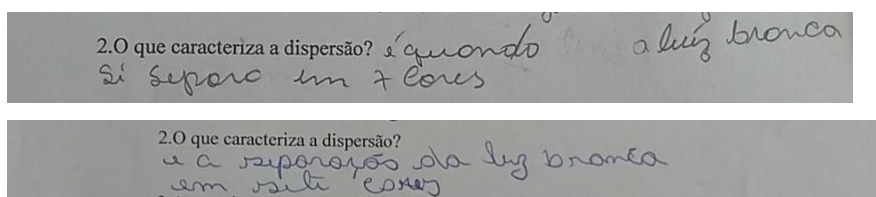 2.O que caracteriza a dispersão? é quando a luiz branca
si separa em 7 cores
2.O que caracteriza a dispersão?
e a separação da luz branca
em seti cores